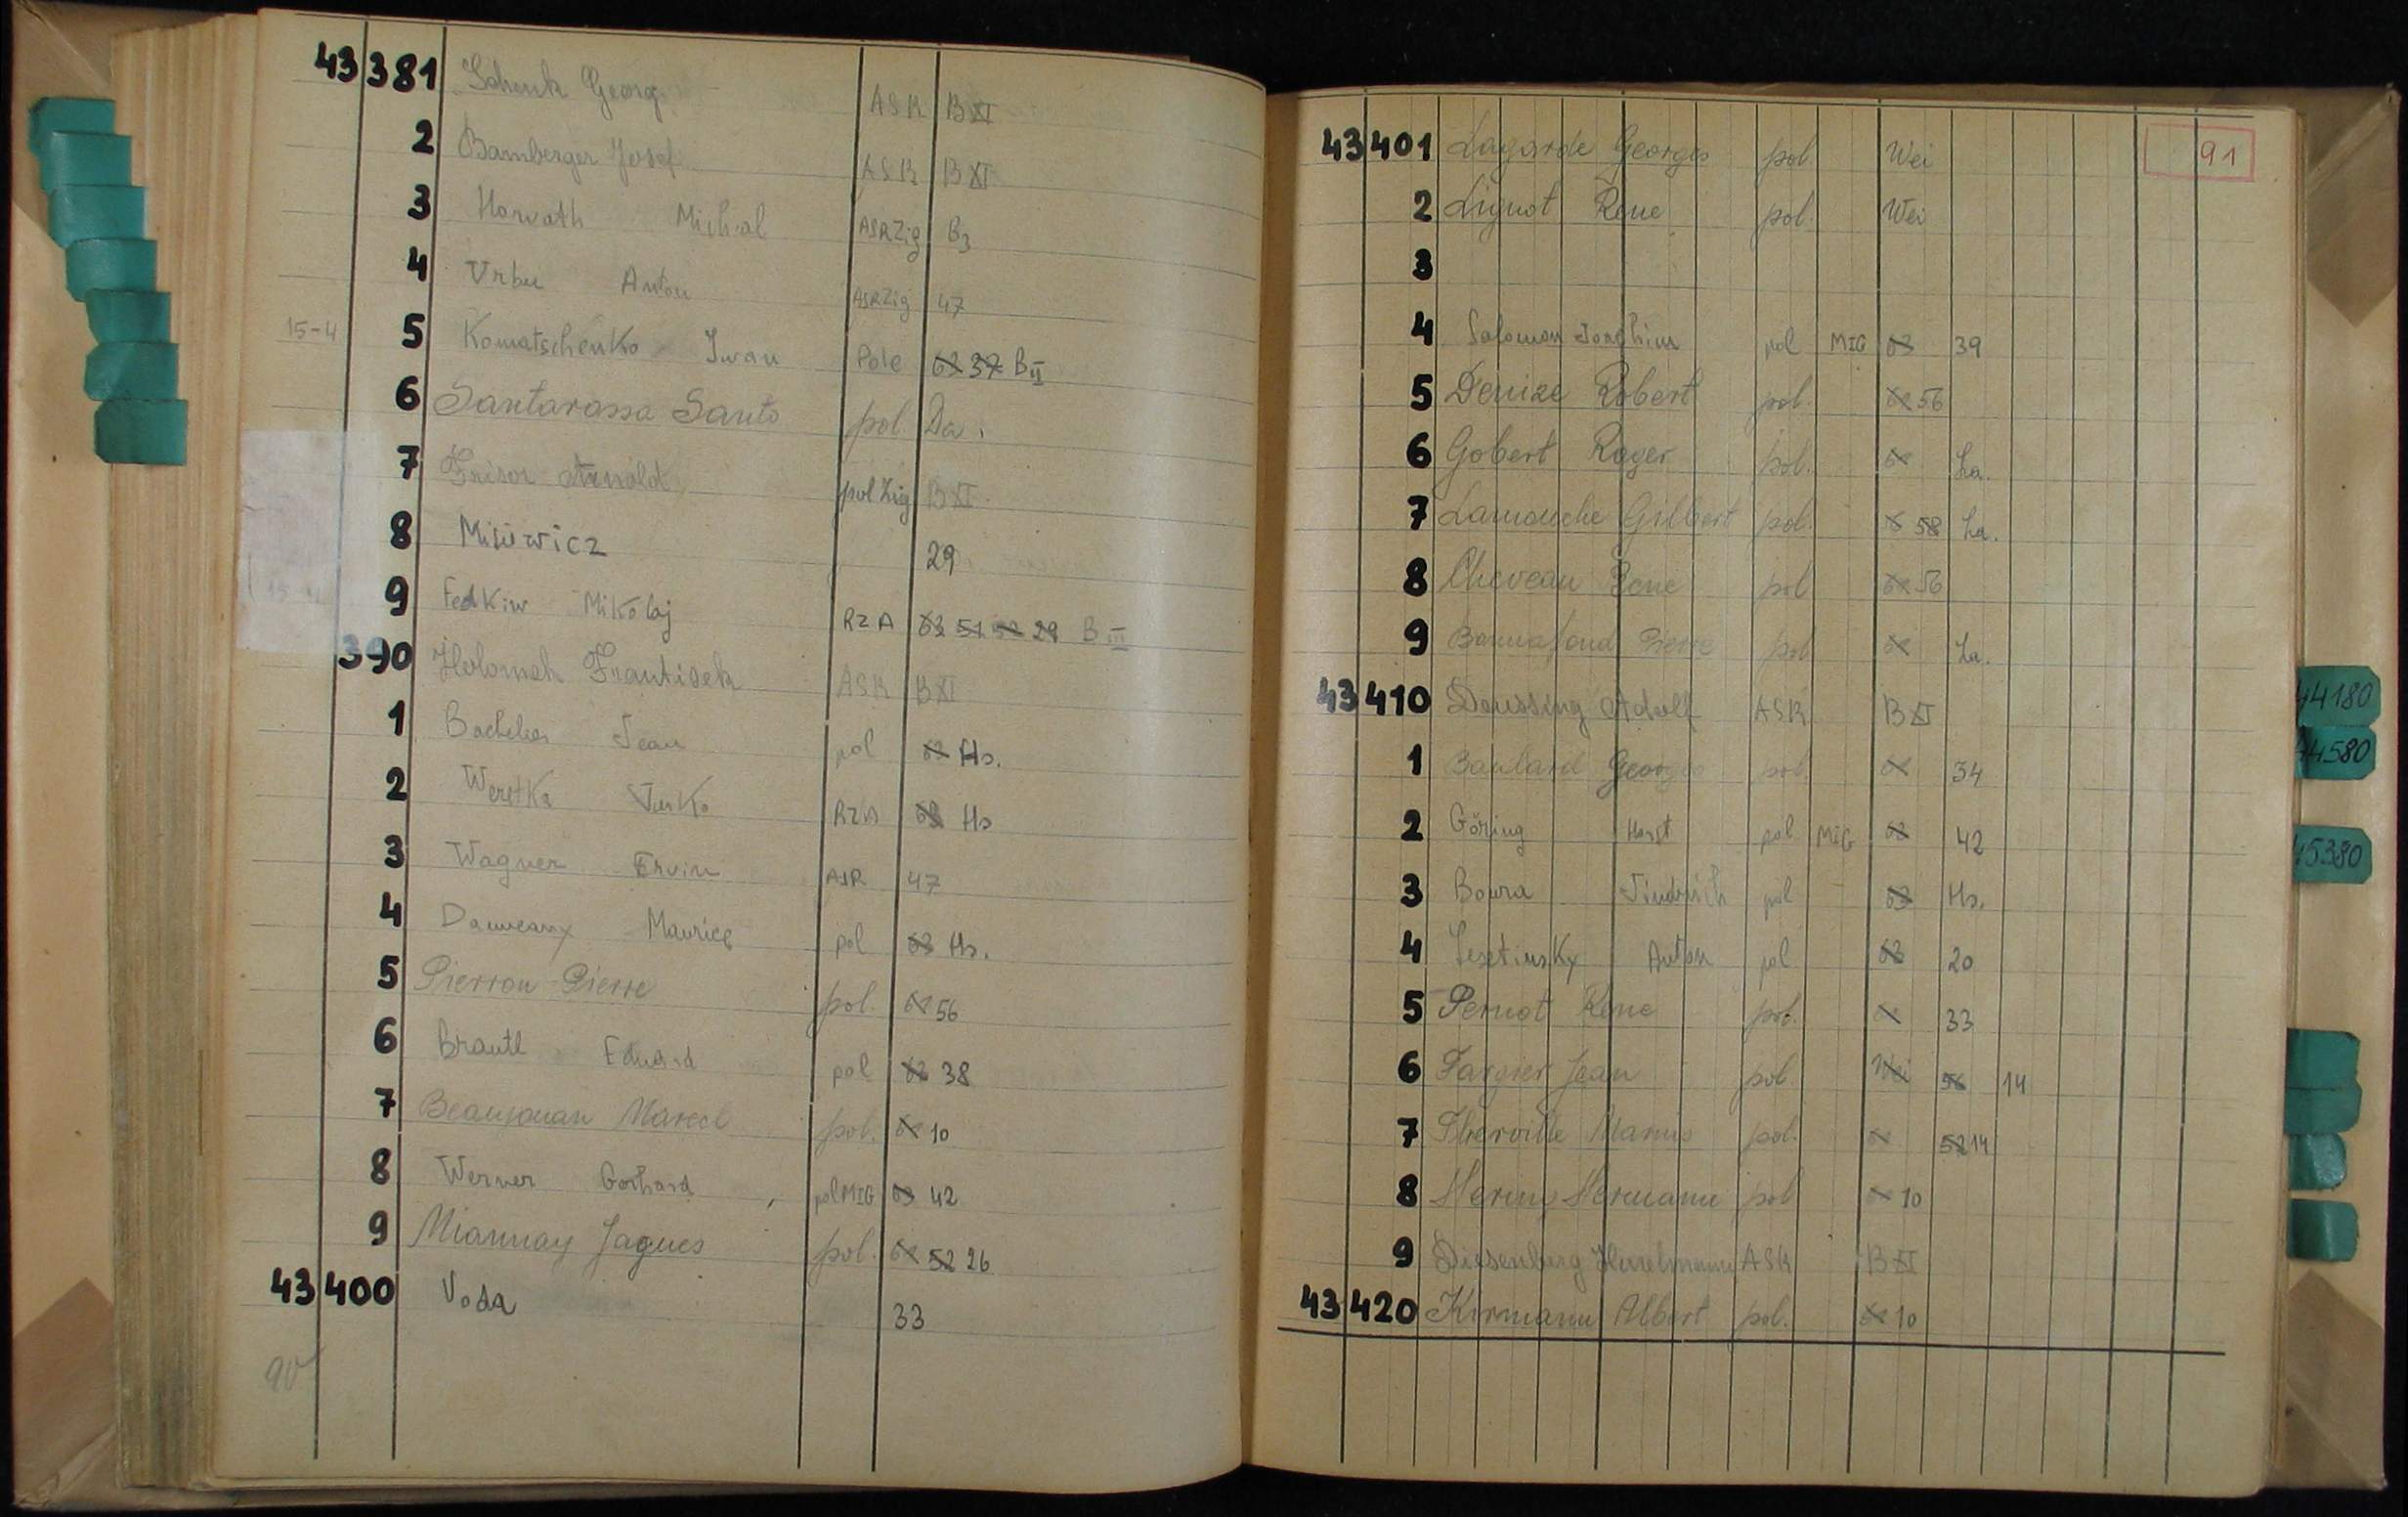 43 381 Schenk Georg ASR B XI
2 Bamberger Josef ASR B XI
3 Horvath Michal ASRZig B3
4 Vrba Anton ASRZig 47
15-4 5 Komatschenko Iwan Pole 63 37 B II
6 Santarossa Santo pol. Da.
7 Frisor Arnold pol Zig B XI.
8 Misiewicz 29
9 Fedkiw Mikolaj RZA 63 51 29 B III
390 Holomek Frantisek ASR B XI
1 Bachelier Jean pol 63 Hs.
2 Weretka Jurko RZA 63 Hs
3 Wagner Ervin ASR 47
4 Dauveaux Maurice pol 63 Hs.
5 Pierron Pierre pol. 62 56
6 Brautl Eduard pol 63 38
7 Beaujouan Marcel pol. 62 10
8 Werner Gerhard pol MIG 63 42
9 Miannay Jaques pol. 62 52 26
43 400 Voda 33
90
91
43 401 Lagarde Georges pol. Wei
2 Lignot Rene pol. Wei
3
4 Salomon Joachim pol MIG 63 39
5 Denize Robert pol. 62 56
6 Gobert Roger pol. 62 La.
7 Lamouche Gilbert pol. 58 La.
8 Cheveau Rene pol 62 56
9 Bonnafond Pierre pol 62 La.
43 410 Daussing Adolf ASR B XI
1 Baulard Georges pol. 62 34
2 Göring Horst pol MIG 63 42
3 Boura Jindrich pol 63 Hs.
4 Lesetinsky Anton pol 63 20
5 Pernot Rene pol. 33
6 Fargier Jean pol. Wei 56 14
7 Therville Marius pol. 52 14
8 Hering Hermann pol 62 10
9 Diesenberg ASR B XI
43 420 Kirmann Albert pol. 62 10
44180
44580
45380